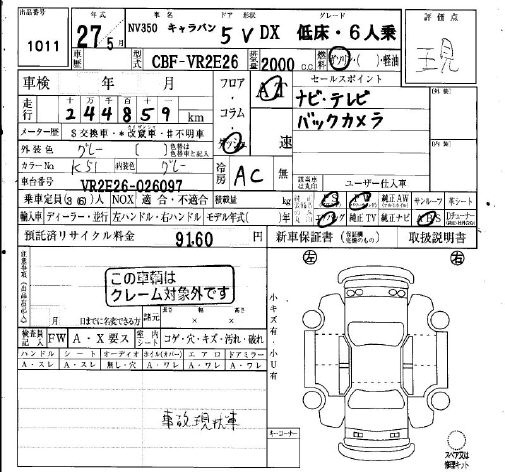 出品番号 1011
年式 27年5月 車名 NV350 キャラバン ドア 形状 5 V グレード DX 低床・6人乗 評価点
車歴 型式 CBF-VR2E26 排気量 2000 c.c. 燃料 ガソリン・( )・軽油
車検 年 月 フロア・コラム・ AT セールスポイント
走行 十 万 千 百 十 一 244859 km ナビ・テレビ
メーター歴 $交換車・*改竄車・#不明車 バックカメラ
外装色 グレー ( ) 色替は 色替車と記入 速
カラーNo K51 内装色 グレー 冷房 AC 無
車台番号 VR2E26-026097 ユーザー仕入車
乗車定員(3(6))人 NOX 適合・不適合 積載量 kg 純正AW サンルーフ 革シート
輸入車 ディーラー・並行 左ハンドル・右ハンドル モデル年式( )年 純正TV 純正ナビ
預託済リサイクル料金 9160 円 新車保証書 取扱説明書
左 右
注意事項(出品店記入)
この車輌は
クレーム対象外です
月 日までに名変できる方 諸元 長さ 幅 高さ
小キズ有・小U有
検査員記入 FW A・X要ス 室内シート コゲ・穴・キズ・汚れ・破れ
ハンドル シート オーディオ ホイル(カバー) エアロ ドアミラー
A・スレ A・スレ 無し・穴 A・ワレ A・ワレ A・ワレ
事故現状車
キーコーナー
スペア又は
修理キット